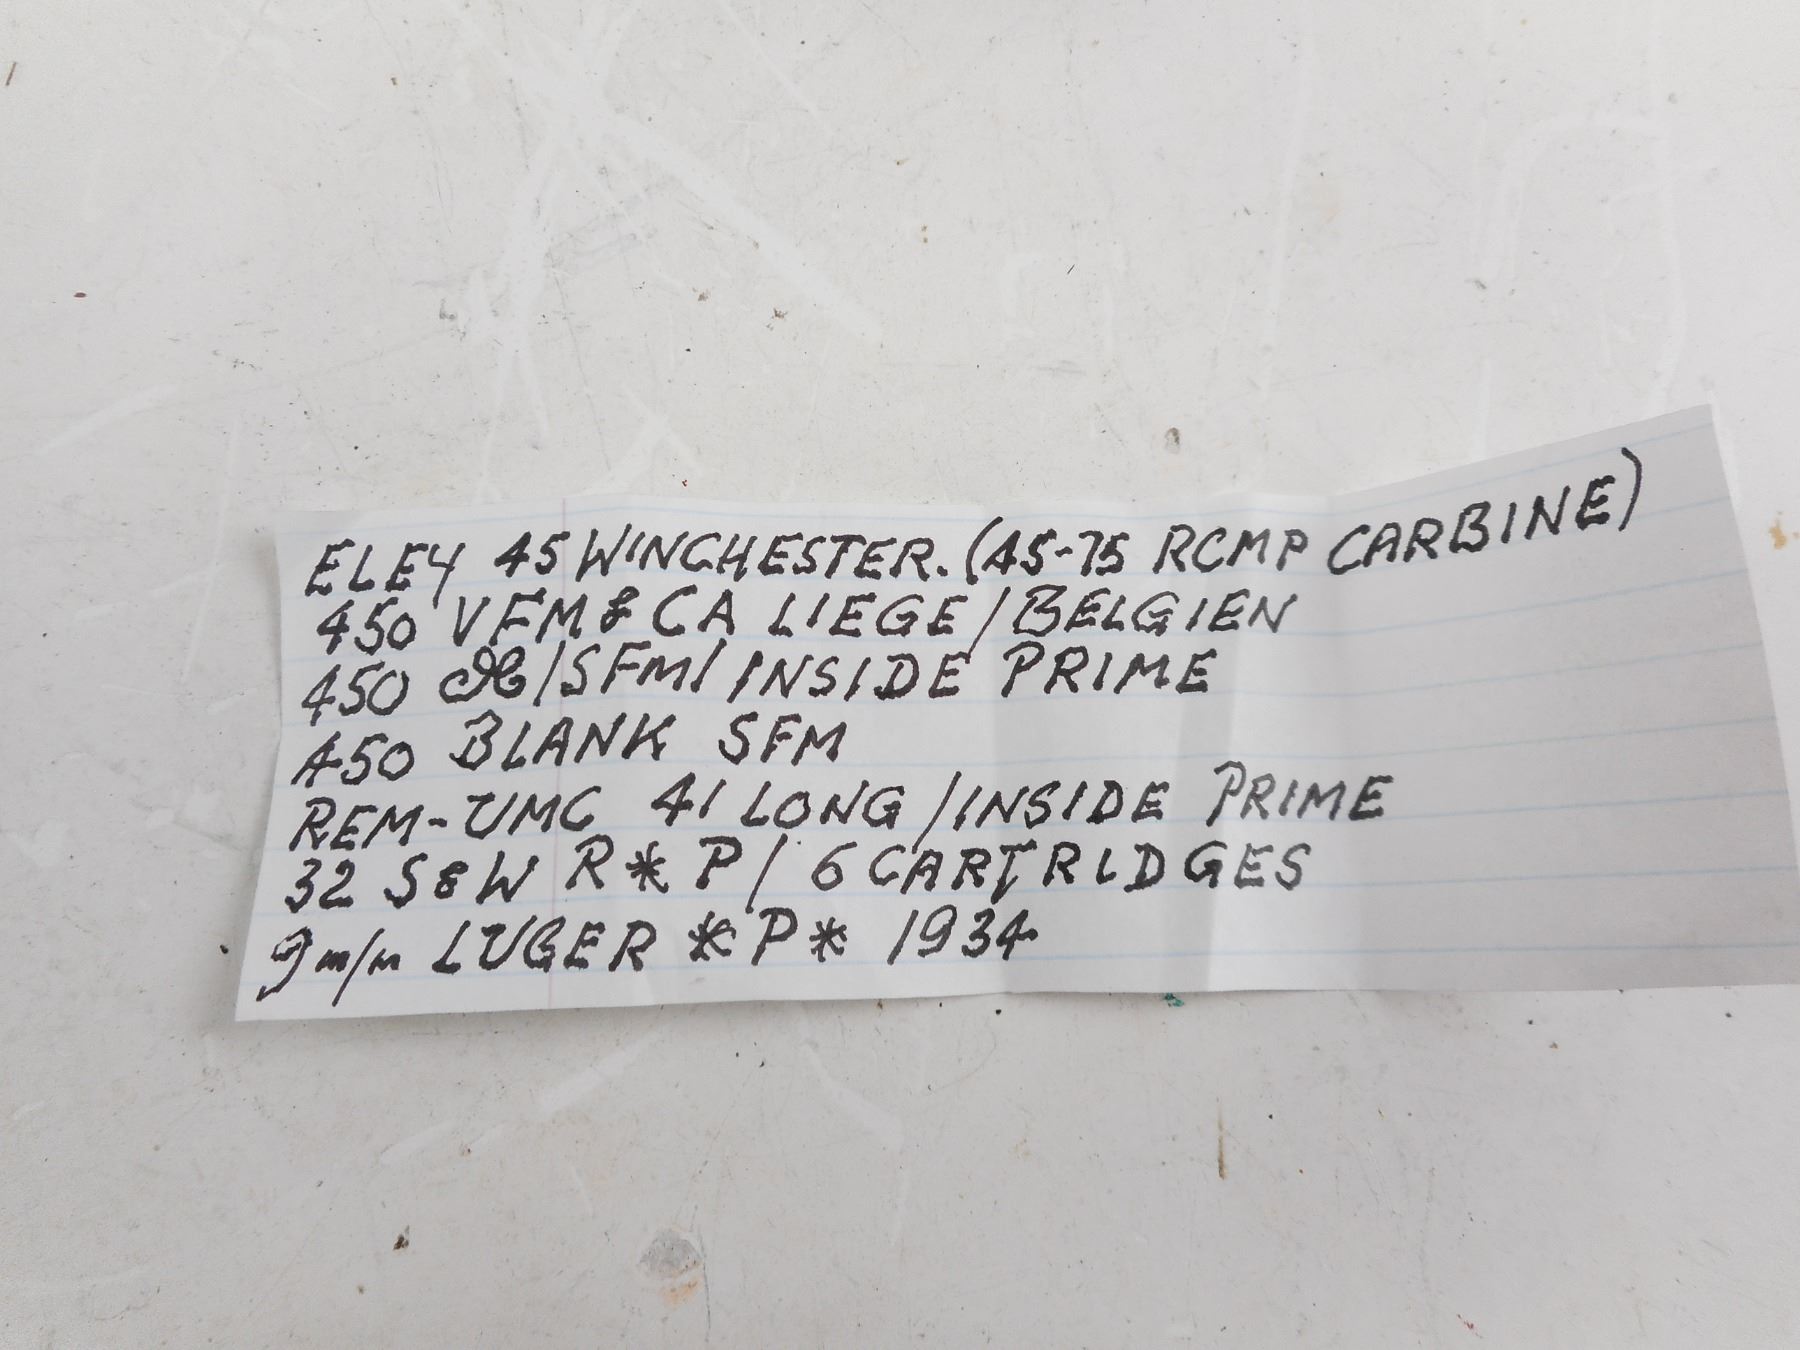 ELEY 45 WINCHESTER. (45-75 RCMP CARBINE)
450 VFM & CA LIEGE/BELGIEN
450 /SFM/ INSIDE PRIME
450 BLANK SFM
REM-UMC 41 LONG/INSIDE PRIME
32 S&W R*P/ 6 CARTRIDGES
9 m/m LUGER *P* 1934